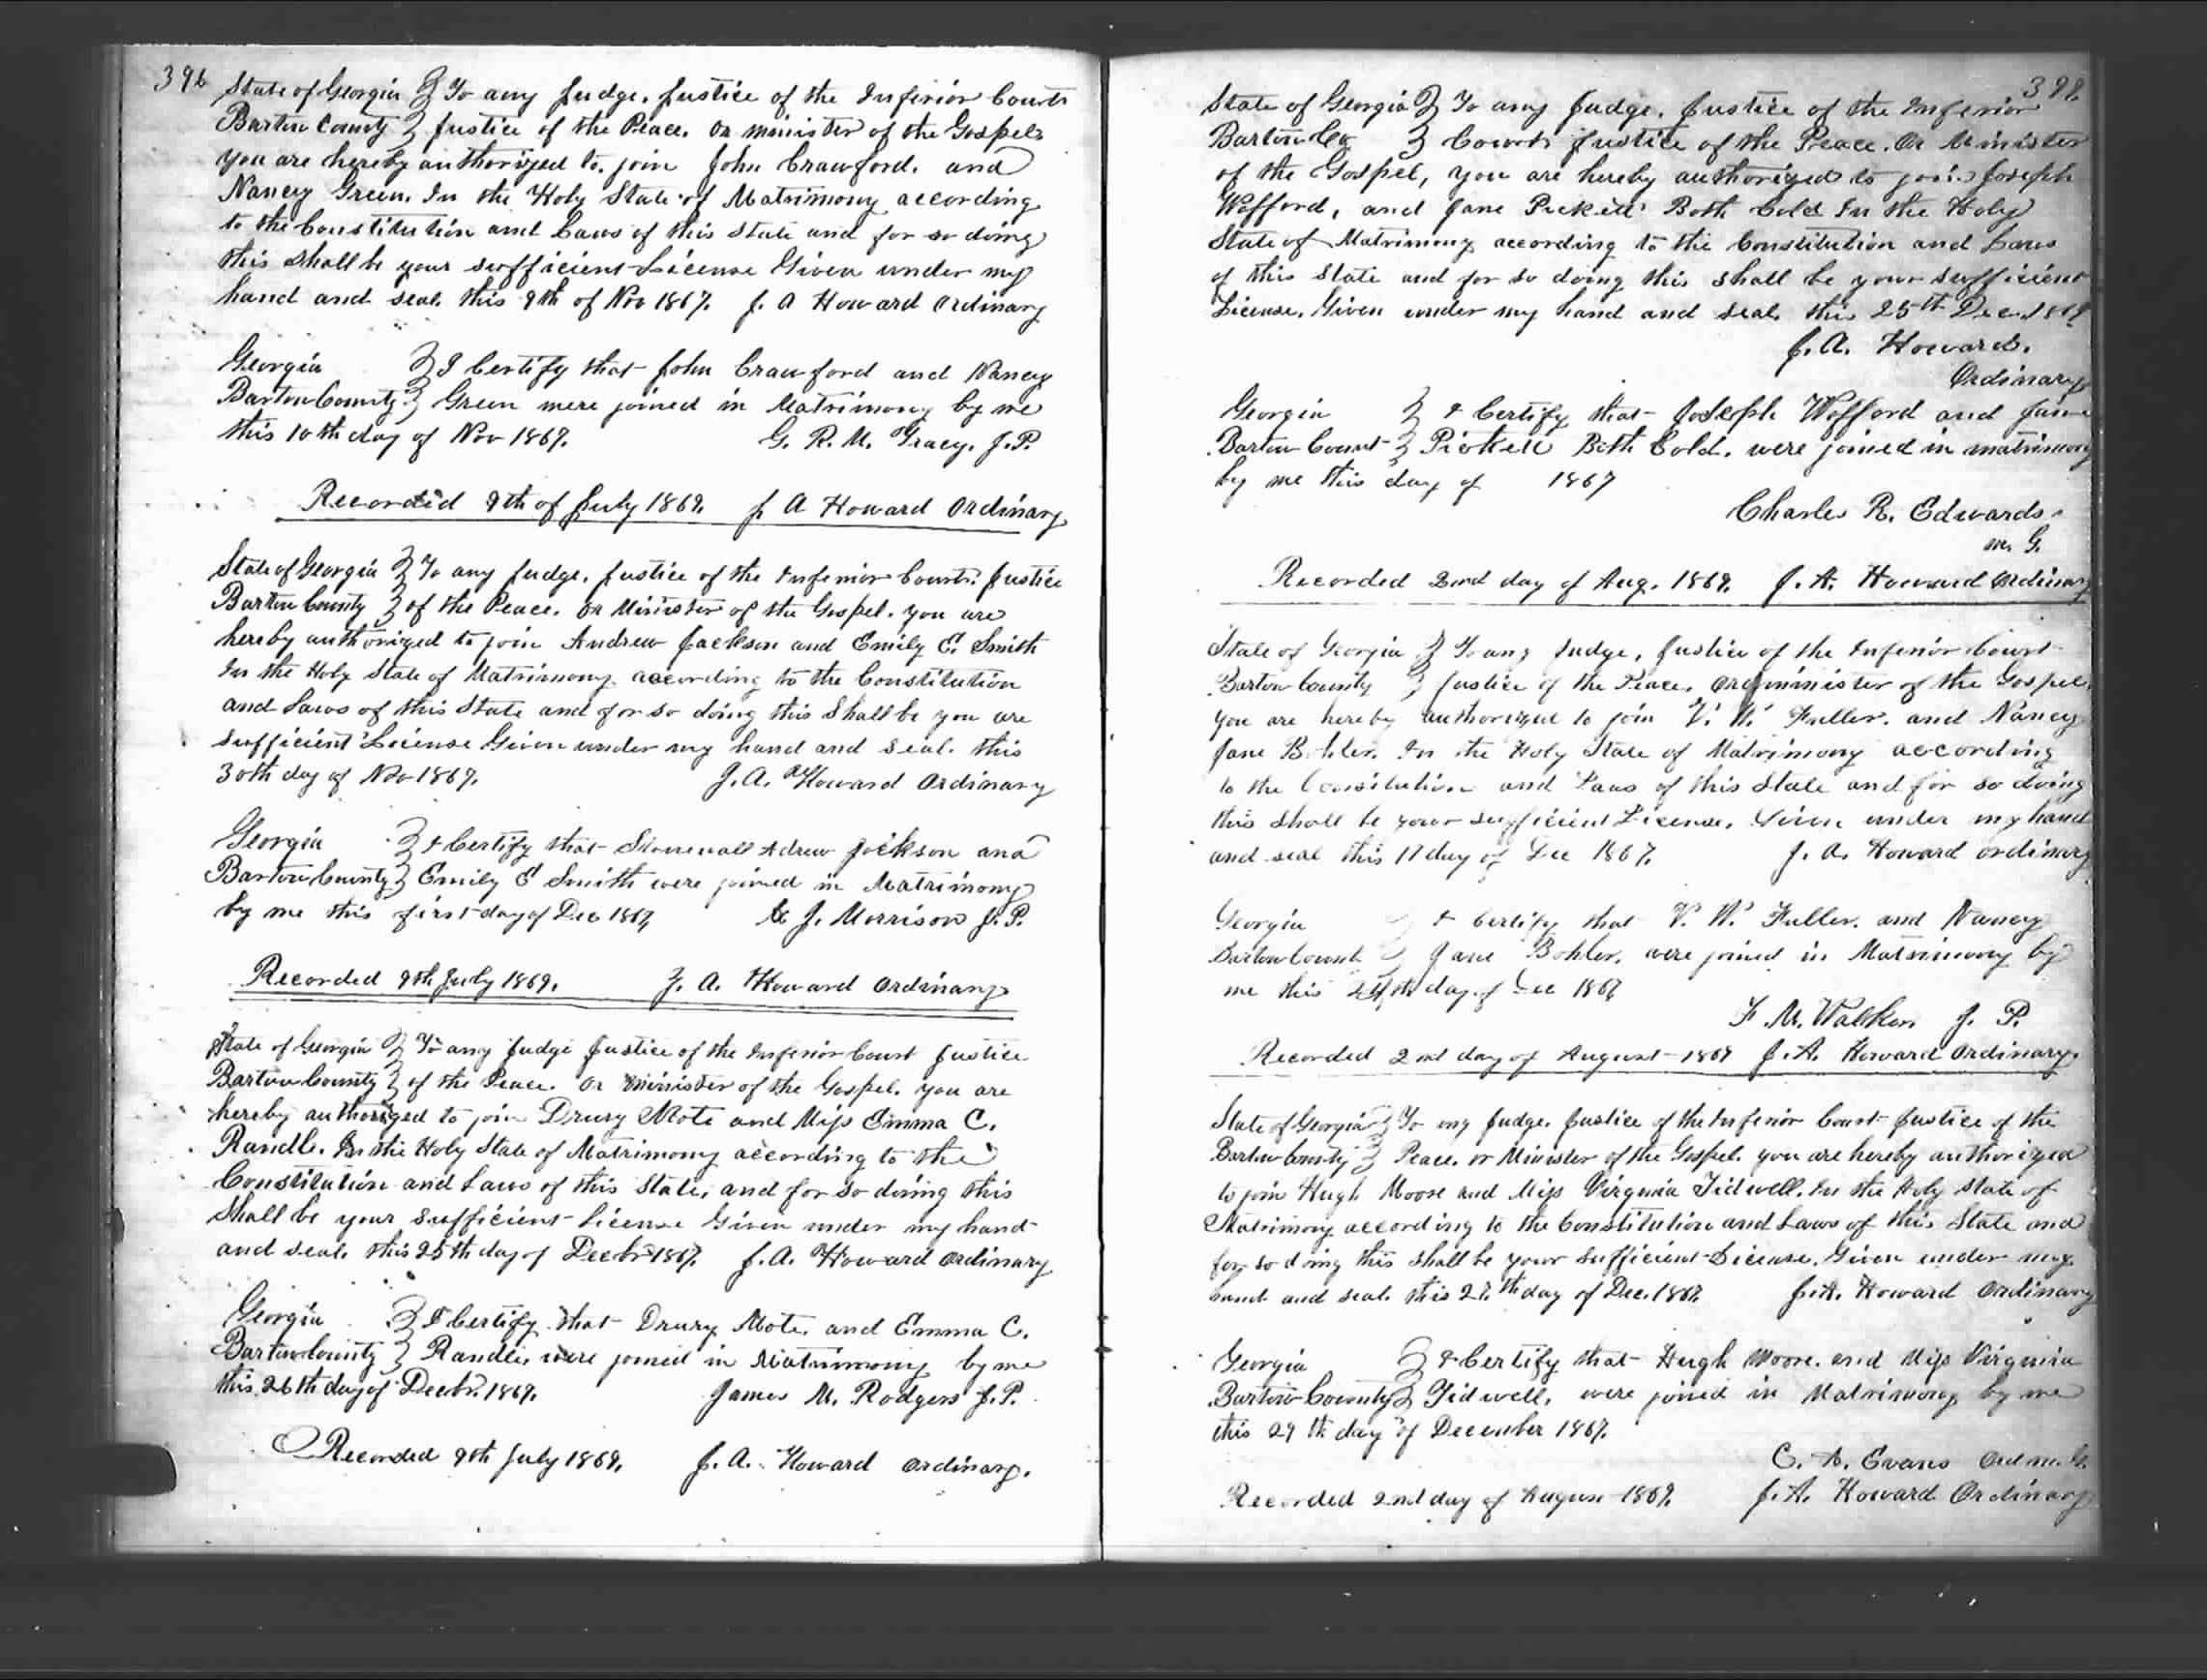 396
State of Georgia } To any Judge, Justice of the Inferior Court
Bartow County } Justice of the Peace. Or minister of the Gospel
you are hereby authorized to join John Crawford. and
Nancy Green. In the Holy State of Matrimony according
to the Constitution and Laws of this State and for so doing
this shall be your sufficient License Given under my
hand and seal. this 9th of Nov 1867. J. A Howard Ordinary
Georgia } I Certify that John Crawford and Nancy
Bartow County } Green were joined in Matrimony by me
this 10th day of Nov 1867. G. R. M. Tracy. J.P.
Recorded 9th of July 1869. J A Howard Ordinary
State of Georgia } To any Judge, Justice of the Inferior Court. Justice
Bartow County } of the Peace. Or Minister of the Gospel. you are
hereby authorized to join Andrew Jackson and Emily E. Smith
In the Holy State of Matrimony according to the Constitution
and Laws of this State and for so doing this Shall be you are
sufficient License Given under my hand and seal. this
30th day of Nov 1867. J. A. Howard Ordinary
Georgia } I Certify that Stonewall Adrew Jackson and
Bartow County } Emily E Smith were joined in Matrimony
by me this first day of Dec 1867, J. Morrison J.P.
Recorded 9th July 1869. J. A. Howard Ordinary
State of Georgia } To any Judge Justice of the Inferior Court Justice
Bartow County } of the Peace. Or Minister of the Gospel. you are
hereby authorized to join Drury Mote and Miss Emma C.
Randle. In the Holy State of Matrimony according to the
Constitution and Laws of this State, and for so doing this
Shall be your Sufficient License Given under my hand
and seal. this 25th day of Decbr 1867. J. A. Howard Ordinary
Georgia } I Certify that Drury Mote. and Emma C.
Bartow County } Randle, were joined in Matrimony by me
this 26th day of Decbr. 1867. James M. Rodgers J.P.
Recorded 9th July 1869. J. A. Howard Ordinary.
State of Georgia } To any Judge. Justice of the Inferior
Bartow Co } Court Justice of the Peace. Or Minister
of the Gospel, you are hereby authorized to join Joseph
Wofford, and Jane Pickett Both Cold In the Holy
State of Matrimony according to the Constitution and Laws
of this State and for so doing this shall be your sufficient
License. Given under my hand and seal. this 25th Dec.
J. A. Howard.
Ordinary
Georgia } I Certify that Joseph Wofford and Jane
Bartow Count } Pickett Both Cold. were joined in matrimony
by me this day of 1867
Charles R. Edwards.
M. G.
Recorded 2nd day of Aug. 1869. J. A. Howard Ordinary
State of Georgia } To any Judge, Justice of the Inferior Court
Bartow County } Justice of the Peace, Or minister of the Gospel,
you are hereby authorized to join V. W. Fuller. and Nancy
Jane Bohler. In the Holy State of Matrimony according
to the Constitution and Laws of this State and for so doing
this shall be your sufficient License. Given under my hand
and seal this 17 day of Dec 1867. J. A. Howard Ordinary
Georgia I Certify that V. W. Fuller. and Nancy
Bartow Count } Jane Bohler. were joined in Matrimony by
me this day of Dec 1867
F. M. Walker. J. P.
Recorded 2nd day of August 1869 J. A. Howard Ordinary.
State of Georgia } To any Judge. Justice of the Inferior Court Justice of the
Bartow County } Peace. or Minister of the Gospel. you are hereby authorized
to join Hugh Moore and Miss Virginia Tidwell. In the Holy State of
Matrimony according to the Constitution and Laws of this State and
for so doing this shall be your sufficient License. Given under my
hand and seal. this 27th day of Dec. 1867. J. A. Howard Ordinary
Georgia } I Certify that Hugh Moore. and Miss Virginia
Bartow County } Tidwell, were joined in Matrimony by me
this 29th day of December 1867.
C. A. Evans
Recorded 2nd day of August 1869. J. A. Howard Ordinary